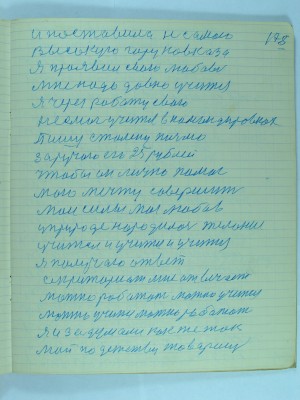 178
и поставила и самого
высокую гору кавказа
я проявил свою любовь
мне надо давно учится
я через работу свою
не смог учится в командировках
пишу сталину писмо
за ручаю его 25 рублей
чтобы он лично помог
мою мечту совершит
мои силы мог любов
у природе народилось желание
учится и учится и учится
я получаю ответ
секритариат мне отвечает
можно работат можно учится
можно учится можно работат
я и задумался как же так
мой по детству товарищ